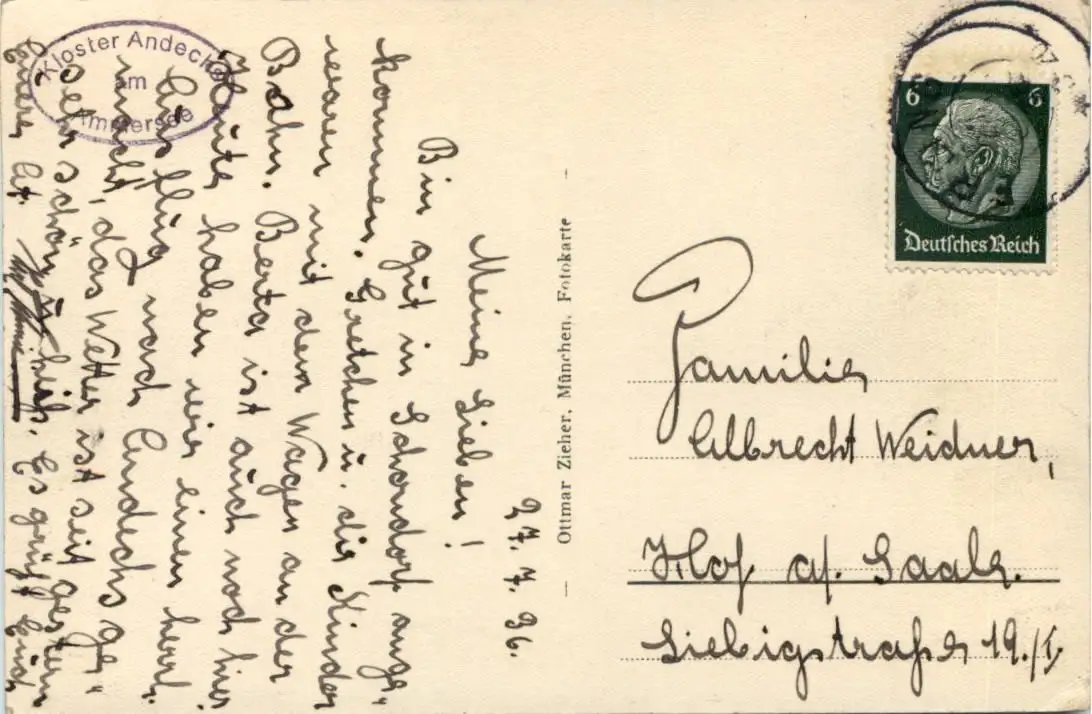 Kloster Andechs
am
Ammersee
27. 7. 36.
Meine Lieben!
Bin gut in Schondorf ange-
kommen. Gretchen u. die Kinder
waren mit dem Wagen an der
Bahn. Berta ist auch noch hier
Heute haben wir einen herrl.
Ausflug nach Andechs ge-
macht, das Wetter ist seit gestern
sehr schön hier. Es grüßt Euch
Eure
Ottmar Zieher, München, Fotokarte
6 6
Deutsches Reich
Familie
Albrecht Weidner,
Hof a/. Saale.
Liebigstraße 19./I.